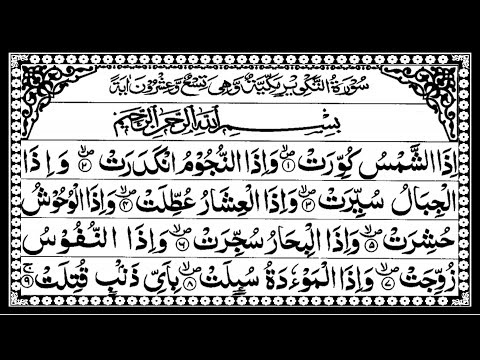 سُوْرَةُ التَّكْوِيْرِ مَكِّيَّةٌ وَّهِيَ تِسْعٌ وَّعِشْرُوْنَ اٰيَةً
بِسْمِ اللّٰهِ الرَّحْمٰنِ الرَّحِيْمِ
اِذَا الشَّمْسُ كُوِّرَتْ ۪ۙ‏۱ وَاِذَا النُّجُوْمُ انْكَدَرَتْ ۪ۙ‏۲ وَ اِذَا
الْجِبَالُ سُيِّرَتْ ۪ۙ‏۳ وَاِذَا الْعِشَارُ عُطِّلَتْ ۪ۙ‏۴ وَاِذَا الْوُحُوْشُ
حُشِرَتْ ۪ۙ‏۵ وَاِذَا الْبِحَارُ سُجِّرَتْ ۪ۙ‏۶ وَاِذَا النُّفُوْسُ
زُوِّجَتْ ۪ۙ‏۷ وَاِذَا الْمَوْءٗدَةُ سُىِٕلَتْ ۪ۙ‏۸ بِاَىِّ ذَنْۢبٍ قُتِلَتْ ۚ‏۹